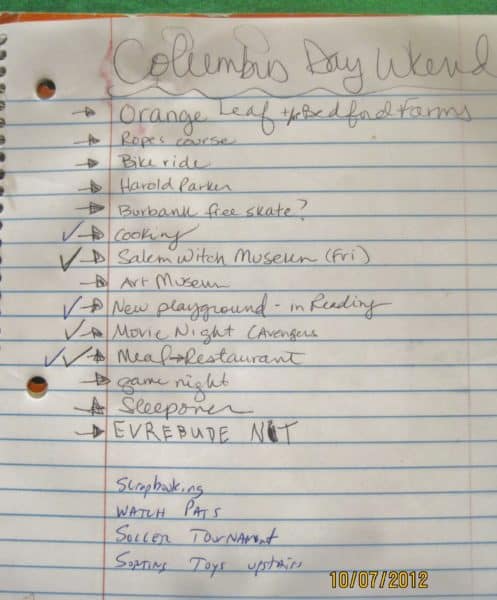 Columbus Day Wkend
Orange Leaf +/or Bedford Farms
Ropes course
Bike ride
Harold Parker
Burbank free skate?
Cooking
Salem Witch Museum (Fri)
Art Museum
New playground - in Reading
Movie Night (Avengers
Meal → Restaurant
game night
Sleepover
EVREBUDE NIT
Scrapbooking
WATCH PATS
SOCCER TOURNAMENT
SORTING TOYS upstairs
10/07/2012